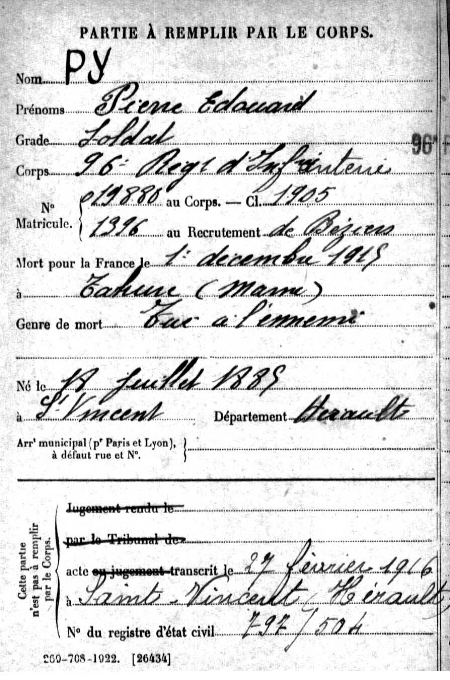 PARTIE À REMPLIR PAR LE CORPS.
Nom PY
Prénoms Pierre Edouard
Grade Soldat
Corps 96e Regt d'Infanterie
96e
No Matricule. 019880 au Corps. — Cl. 1905
1396 au Recrutement de Béziers
Mort pour la France le 1er décembre 1915
à Tahure (Marne)
Genre de mort Tué à l'ennemi
Né le 18 Juillet 1885
à St Vincent Département Hérault
Arrt municipal (pr Paris et Lyon),
à défaut rue et No.
Cette partie n'est pas à remplir par le Corps.
Jugement rendu le
par le Tribunal de
acte ou jugement transcrit le 27 février 1916
à Saint-Vincent (Hérault)
No du registre d'état civil 797/504
260-708-1922. [26434]